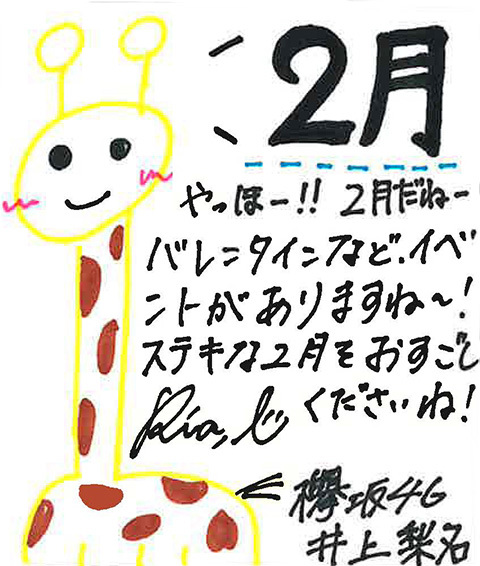 2月
やっほー!! 2月だねー
バレンタインなど、イベ
ントがありますね〜!
ステキな2月をおすごし
くださいね!
欅坂46
井上梨名